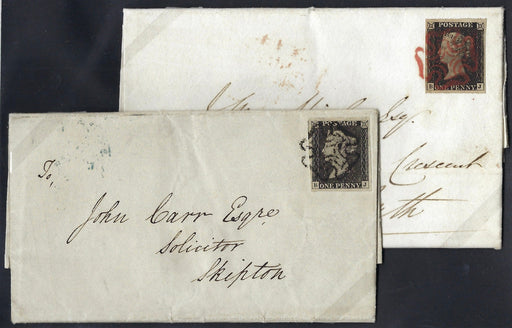 POSTAGE
ONE PENNY
Esq.
Crescent
POSTAGE
B ONE PENNY J
To,
John Carr Esqre
Solicitor
Skipton